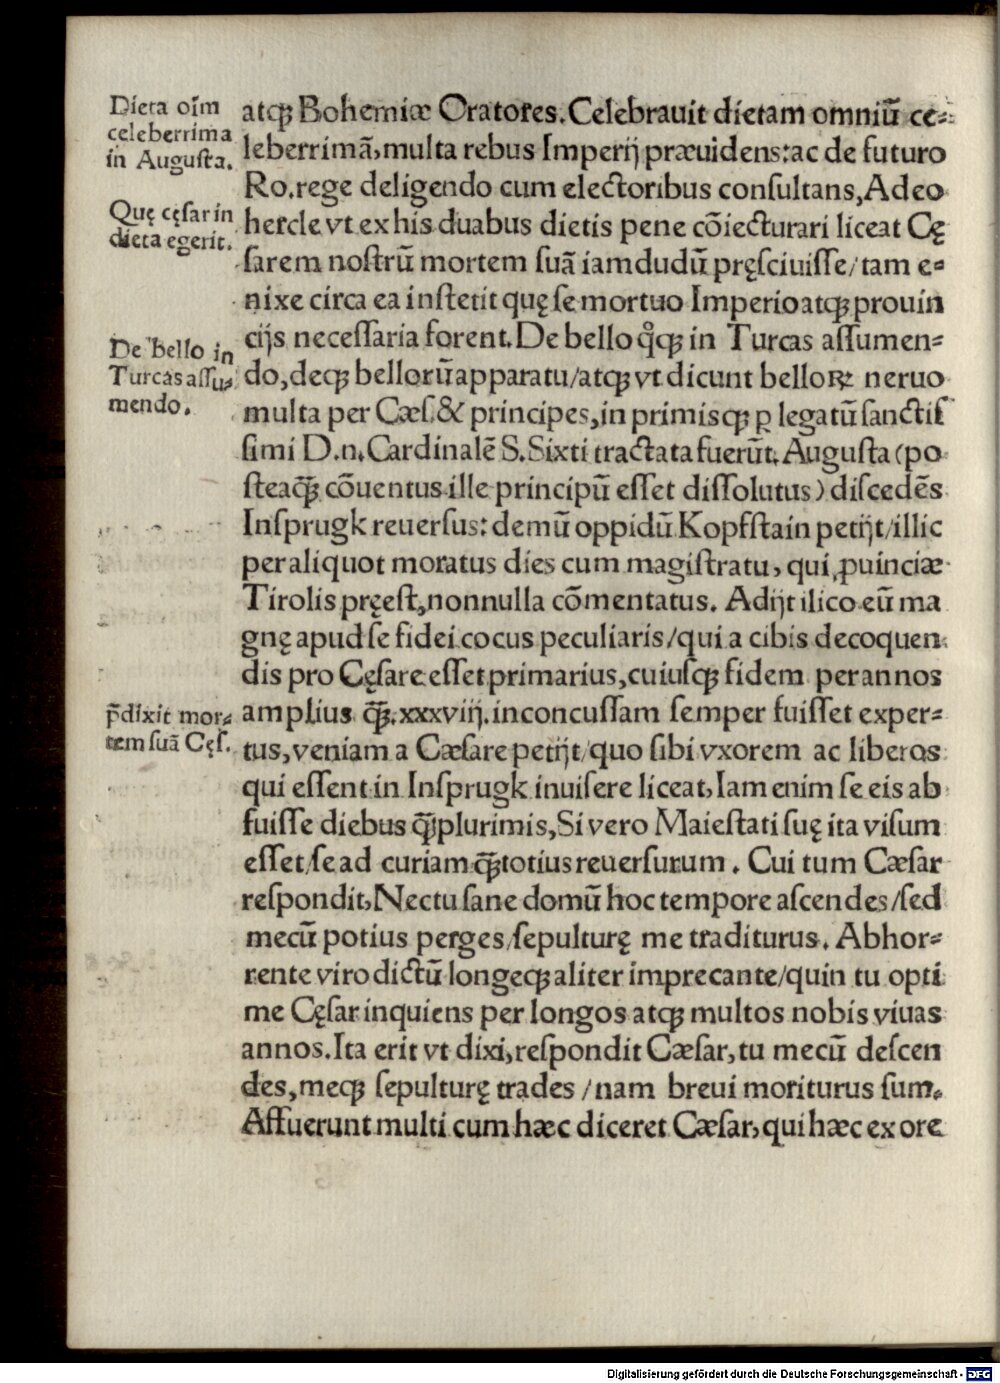 Dieta oīm
celeberrima
in Augusta.
Quę cęsar in
dieta egerit.
De bello in
Turcas assu-
mendo.
p̄dixit mor-
tem suā Cęs.
atq́ꝫ Bohemiæ Oratores. Celebrauit dietam omniū ce-
leberrimā, multa rebus Imperij præuidens: ac de futuro
Ro. rege deligendo cum electoribus consultans, Adeo
hercle vt ex his duabus dietis pene cōiecturari liceat Cę
sarem nostrū mortem suā iamdudū pręsciuisse/ tam e-
nixe circa ea institit quę se mortuo Imperio atqꝫ prouin
cijs necessaria forent. De bello qͦqꝫ in Turcas assumen-
do, deqꝫ bellorū apparatu/ atqꝫ vt dicunt belloꝝ neruo
multa per Cæs. & principes, in primisqꝫ ꝑ legatū sanctis
simi D. n. Cardinalē S. Sixti tractata fuerūt. Augusta (po
steaq̄ꝫ cōuentus ille principū esset dissolutus) discedēs
Insprugk reuersus: demū oppidū Kopfstain petijt/ illic
per aliquot moratus dies cum magistratu, qui ꝓuinciæ
Tirolis pręest, nonnulla cōmentatus. Adijt ilico eū ma
gnę apud se fidei cocus peculiaris/ qui a cibis decoquen
dis pro Cęsare esset primarius, cuiusqꝫ fidem per annos
amplius q̄ꝫ. xxxviij. inconcussam semper fuisset exper-
tus, veniam a Cæsare petijt/ quo sibi vxorem ac liberos
qui essent in Insprugk inuisere liceat, Iam enim se eis ab
fuisse diebus q̄ꝫplurimis, Si vero Maiestati suę ita visum
esset/ se ad curiam q̄ꝫtotius reuersurum. Cui tum Cæsar
respondit, Nec tu sane domū hoc tempore ascendes/ sed
mecū potius perges/ sepulturę me traditurus. Abhor-
rente viro dictū longeqꝫ aliter imprecante/ quin tu opti
me Cęsar inquiens per longos atqꝫ multos nobis viuas
annos. Ita erit vt dixi, respondit Cæsar, tu mecū descen
des, meqꝫ sepulturę trades/ nam breui moriturus sum.
Affuerunt multi cum hæc diceret Cæsar, qui hæc ex ore
Digitalisierung gefördert durch die Deutsche Forschungsgemeinschaft - DFG